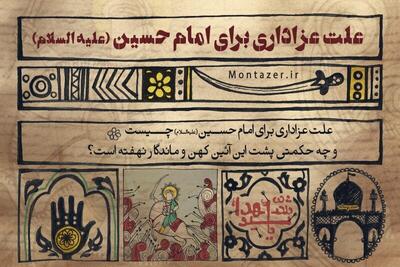 علت عزاداری برای امام حسین (علیه السلام)
Montazer.ir
علت عزاداری برای امام حسین (علیه‌السلام) چیست
و چه حکمتی پشت این آئین کهن و ماندگار نهفته است؟